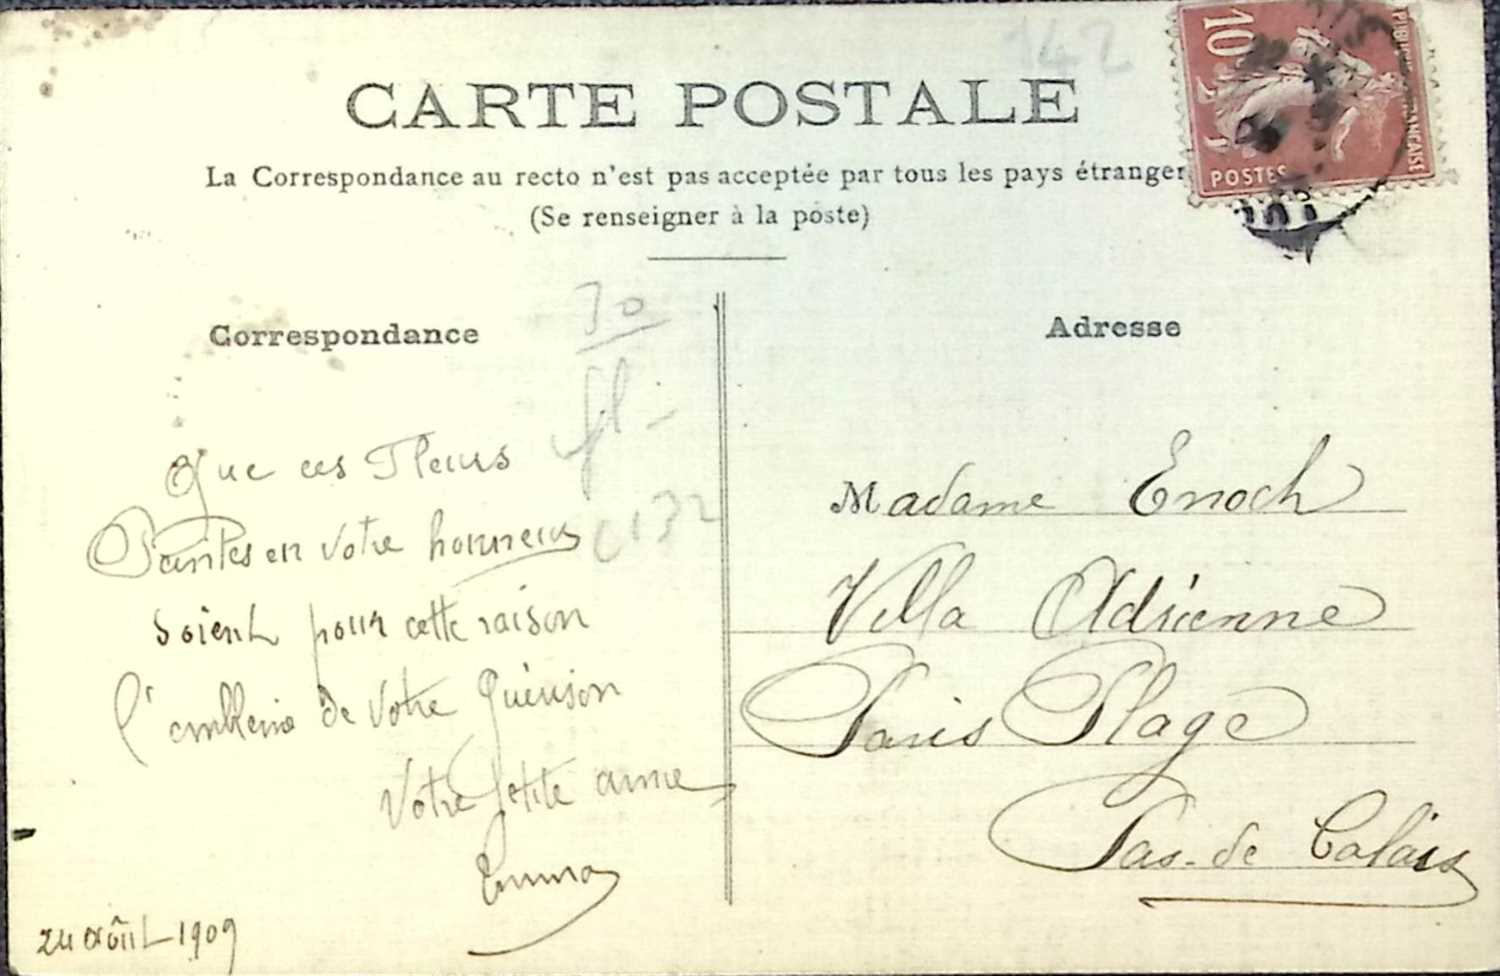 142
CARTE POSTALE
La Correspondance au recto n'est pas acceptée par tous les pays étranger
(Se renseigner à la poste)
10
POSTES
Correspondance
30
Adresse
Que ces Fleurs
Peintes en votre honneur
soient pour cette raison
l'emblème de votre Guérison
Votre petite amie
Emma
24 Août 1909
Madame Enoch
Villa Adrienne
Paris Plage
Pas-de Calais